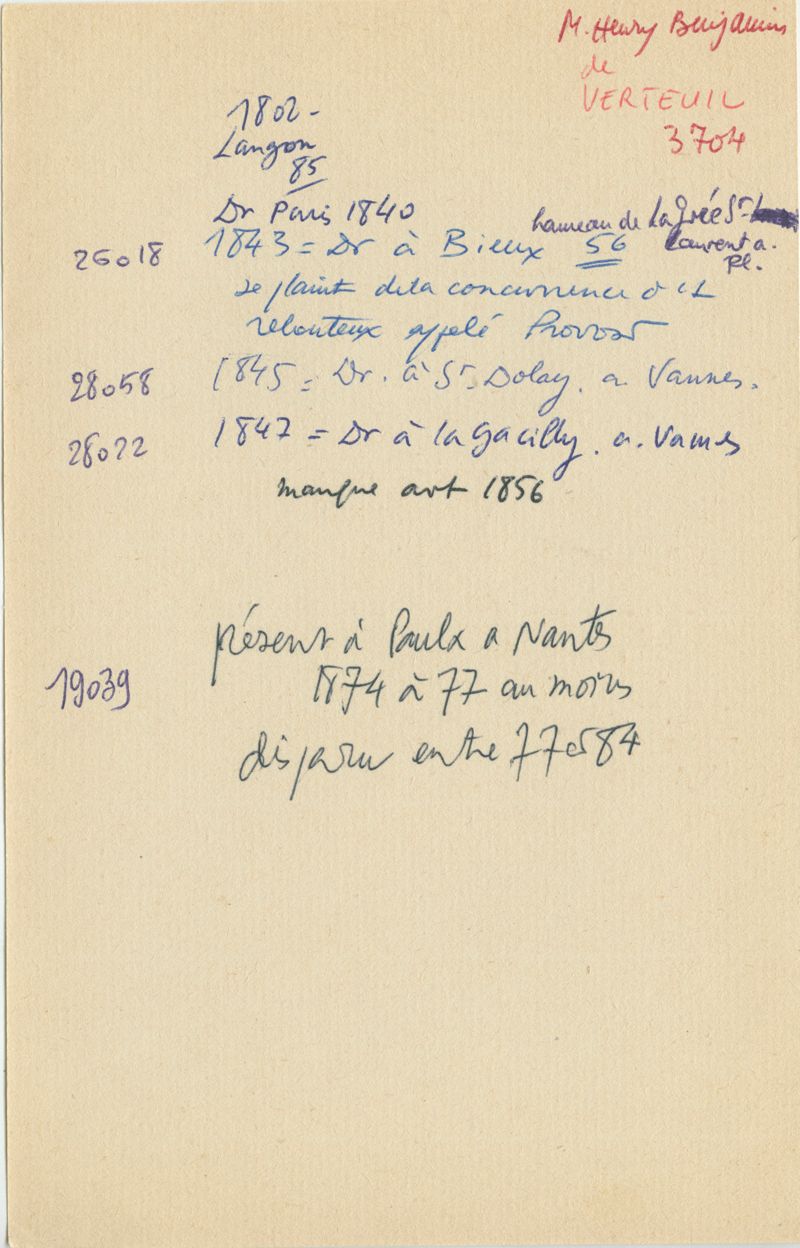 M. Henry Benjamin
de
VERTEUIL
3704
1802 -
Langon
85
Dr Paris 1840
hameau de La Grée St-
Laurent a.
Pl.
26018 1843 = Dr à Bieux 56
se plaint de la concurrence d'1
rebouteux appelé Provost
28058 1845 = Dr. à St. Dolay. a. Vannes.
28022 1847 = Dr à la Gacilly. a. Vannes
manque avt 1856
présent à Paulx a Nantes
19039 1874 à 77 au moins
disparu entre 77 et 84